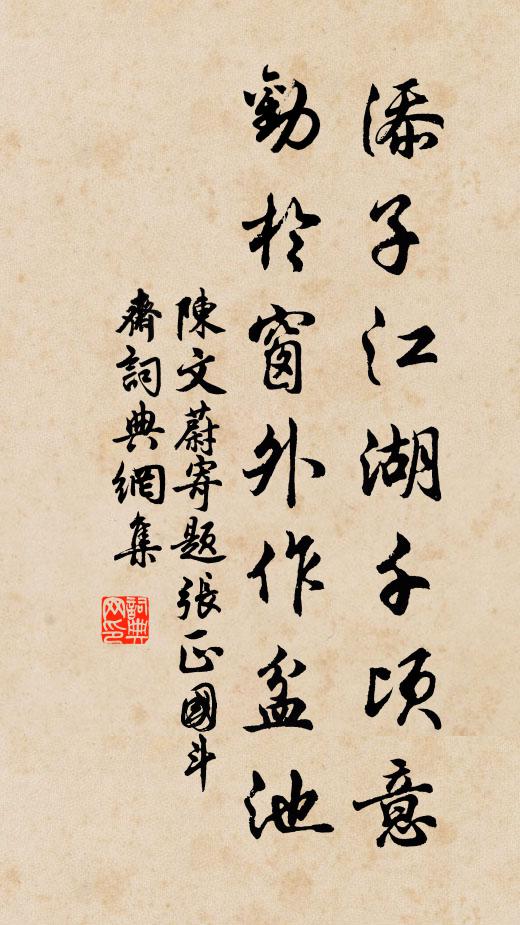 添子江湖千頃意
勸於窗外作盆池
陳文蔚寄題張正國斗
齋詞典網集
詞典网印